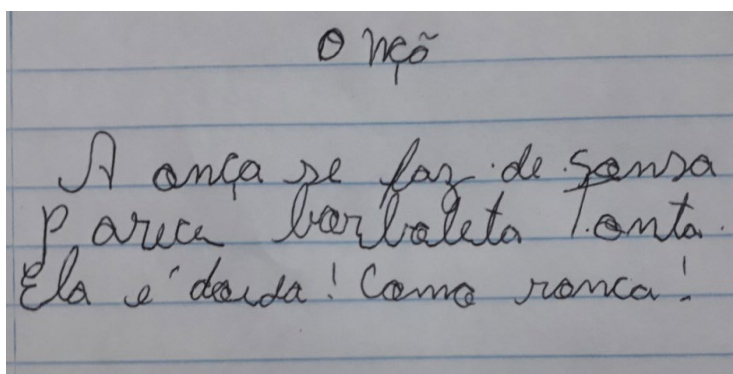 O nçõ
A onça se faz de sonsa
Parece borboleta tonta.
Ela é doida! Como ronca!